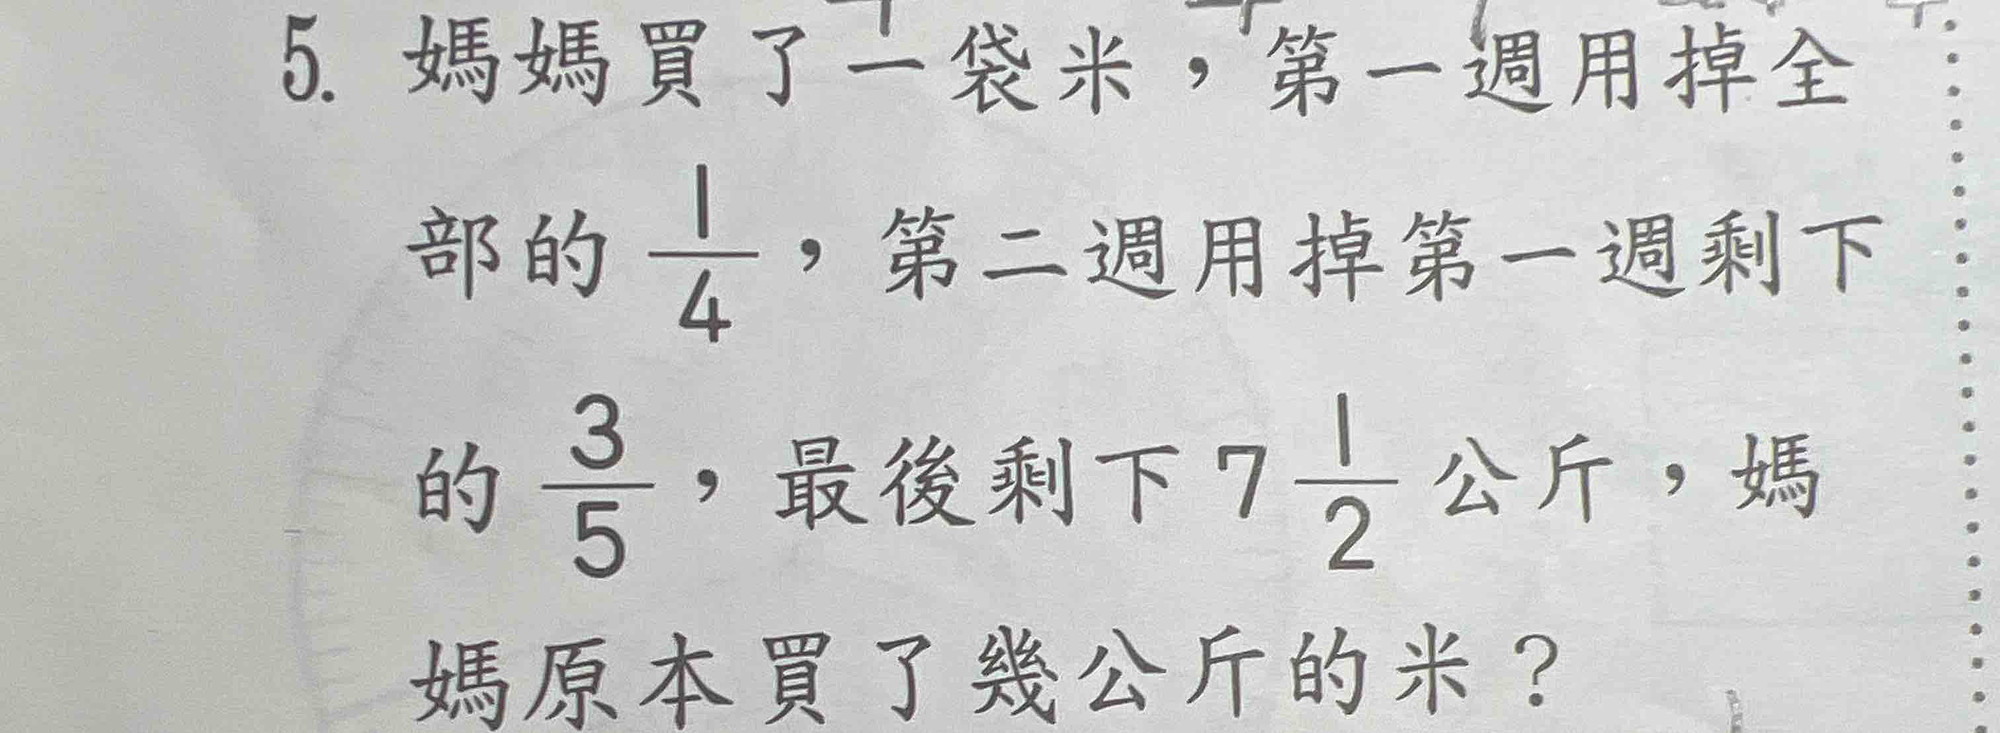 5. 媽媽買了一袋米，第一週用掉全
部的 1/4，第二週用掉第一週剩下
的 3/5，最後剩下 7 1/2 公斤，媽
媽原本買了幾公斤的米？